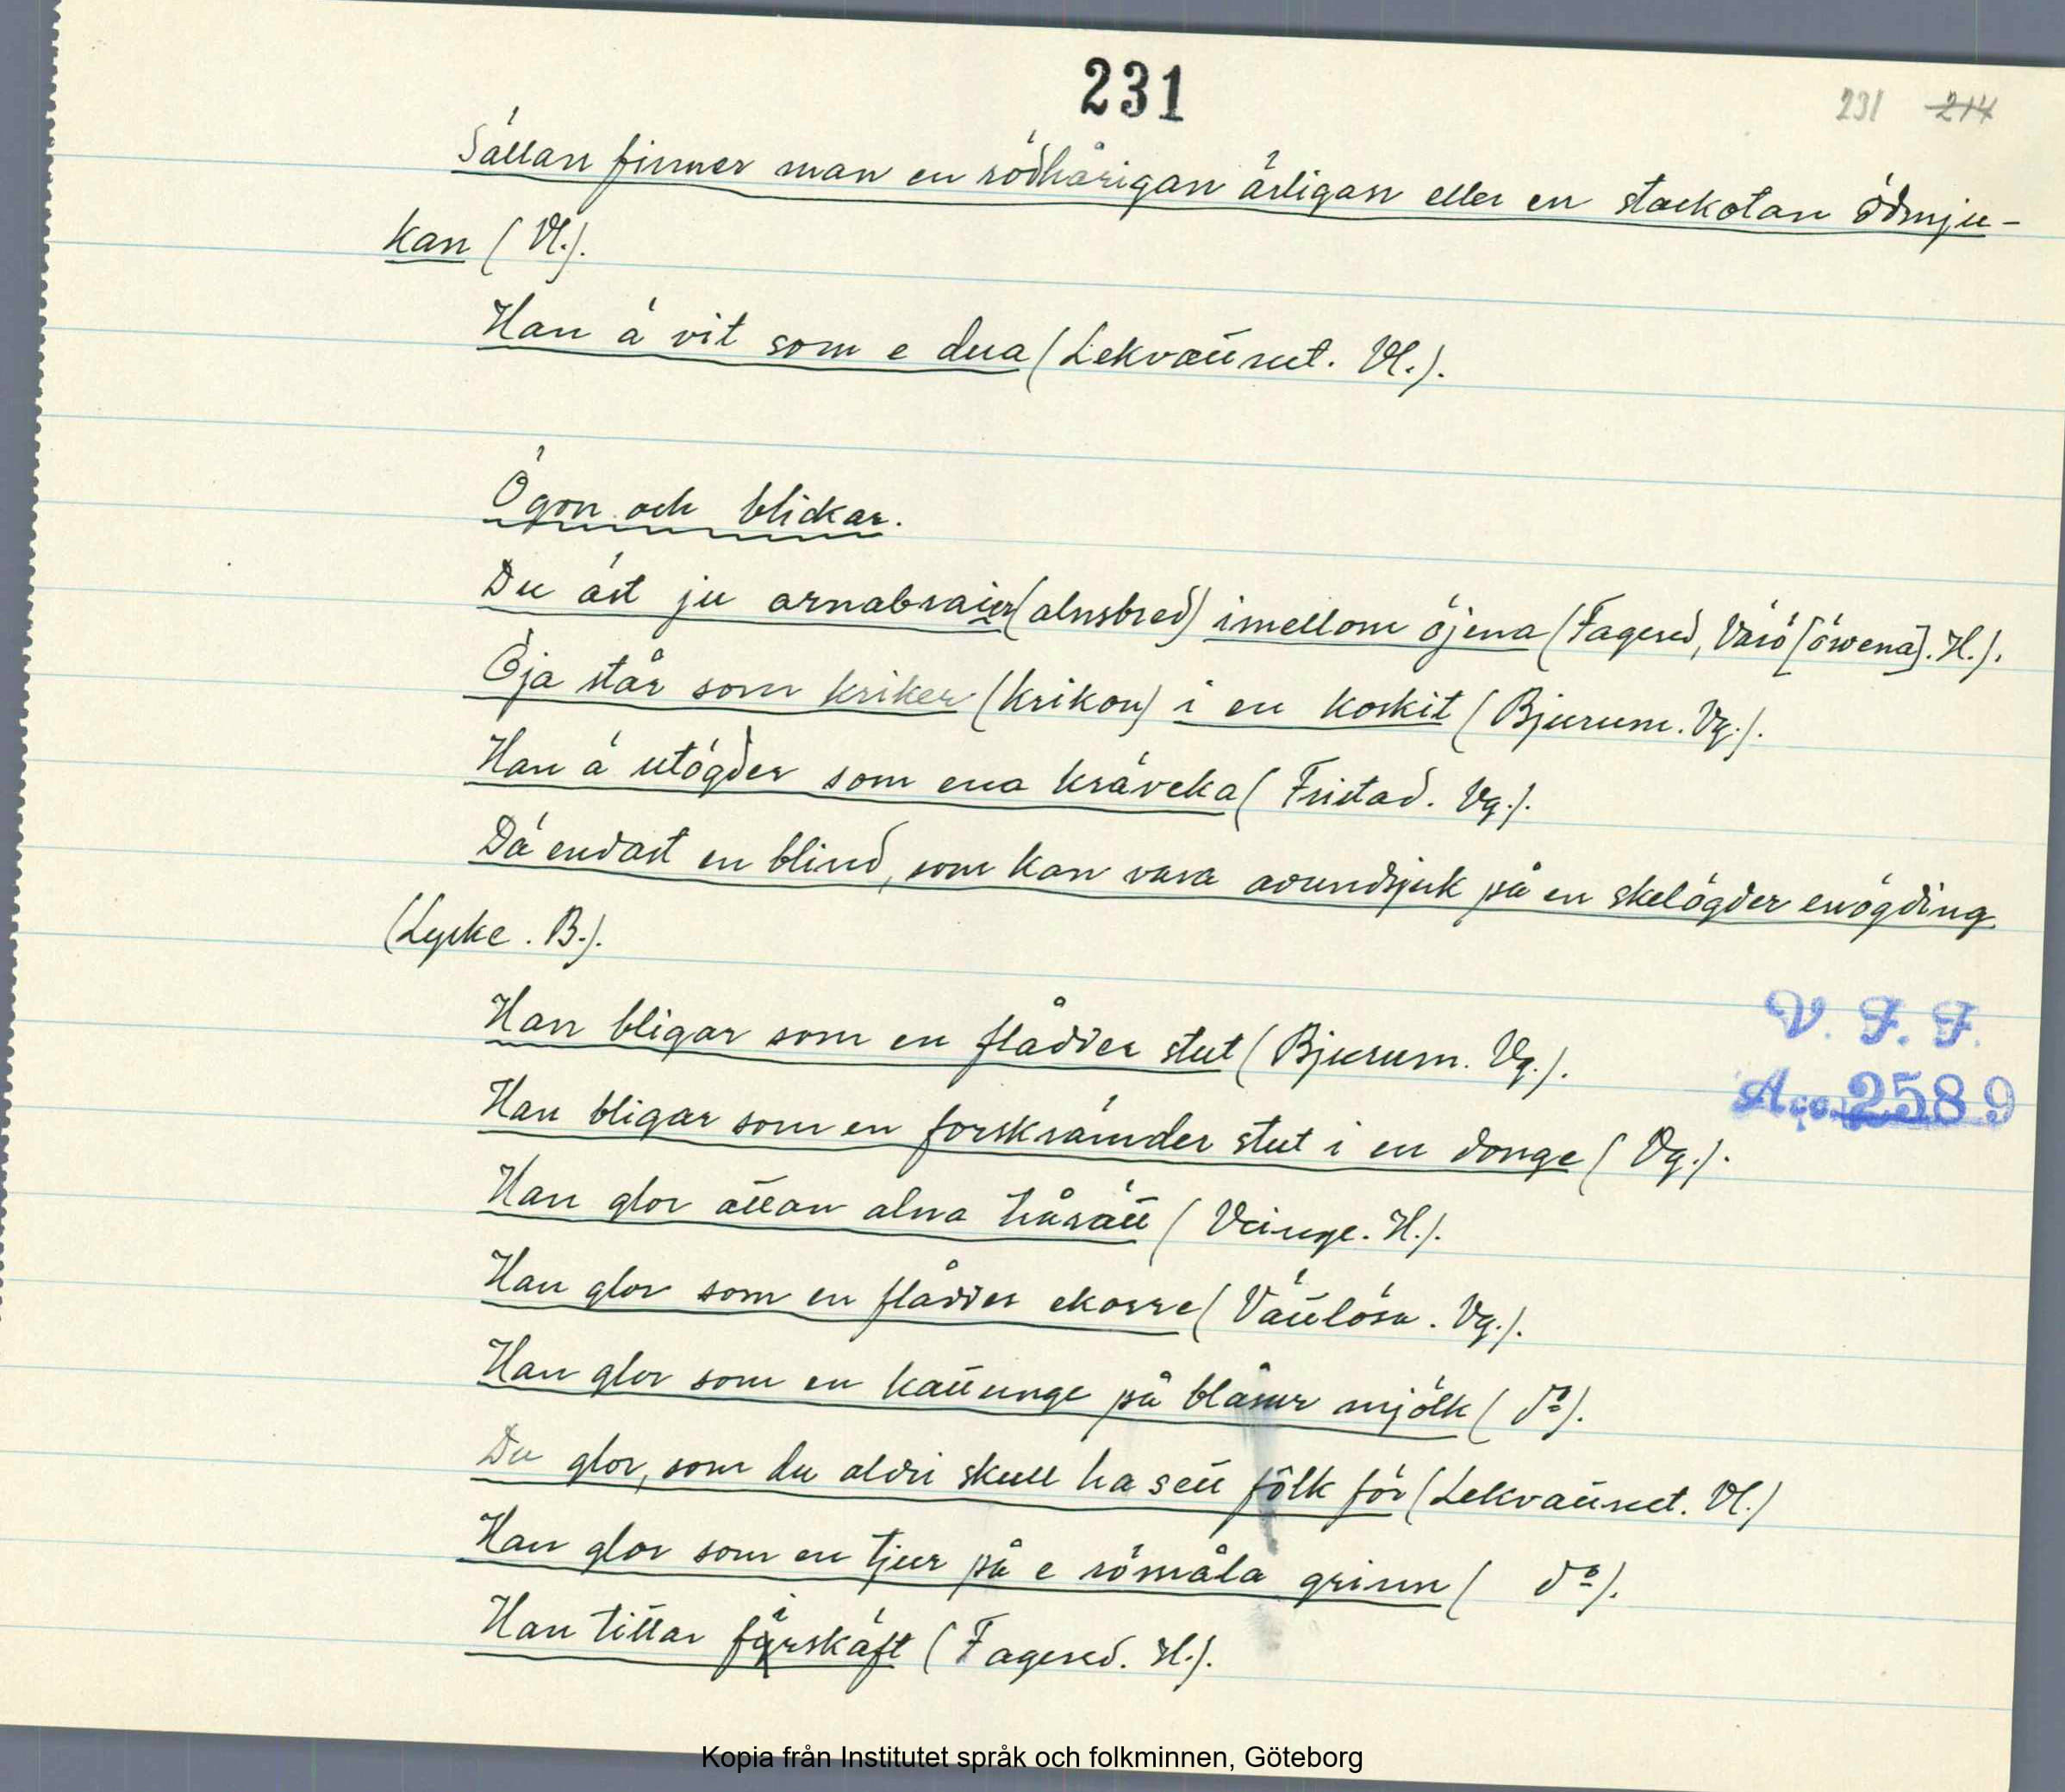 231
231 214
Sällan finner man en rödhårigan ärligan eller en stackotan ödmju-
kan (Vl.).
Han ä vit som e dua (Lekvattnet. Vl.).
Ögon och blickar.
Du äst ju arnabraier (alnsbred) imellom öjena (Fagered, Värö [öwena]. H.).
Öja står som kriker (krikon) i en koskit (Bjurum. Vg.).
Han ä utögder som ena kräveka (Fristad. Vg.).
Dä endast en blind, som kan vara avundsjuk på en skelögder enögding
(Lycke. B.).
Han bligar som en flådder stut (Bjurum. Vg.).
Han bligar som en forskrämder stut i en donge (Vg.).
Han glor attan alna hårätt (Veinge. H.).
Han glor som en flådder ekorre (Vättlösa. Vg.).
Han glor som en kattunge på blåsur mjölk (do).
Du glor, som du aldri skull ha sett fôlk för (Lekvattnet. Vl.)
Han glor som en tjur på e römåla grinn (do).
Han tittar färskäft (Fagered. H.).
V. F. F.
Acc. 2589
Kopia från Institutet språk och folkminnen, Göteborg